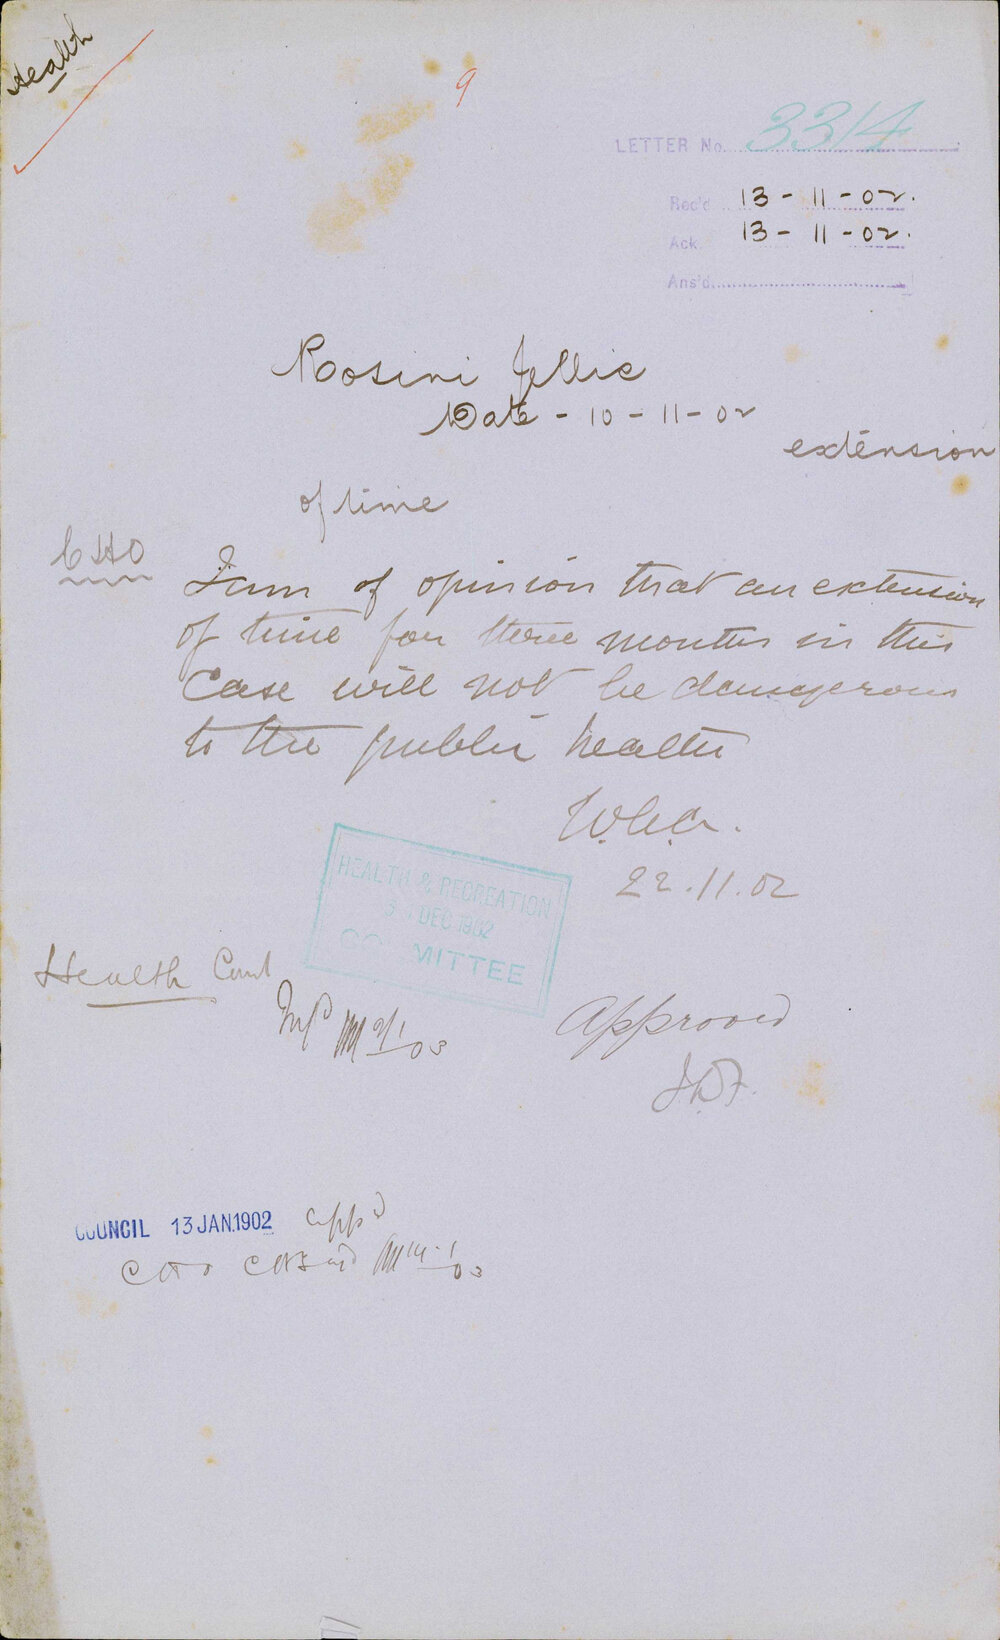 Health
9
LETTER No. 3314
Rec'd 13 - 11 - 02.
Ack 13 - 11 - 02.
Ans'd
Rosini Jellie
Date - 10 - 11 - 02
extension
of time
CHO
I am of opinion that an extension
of time for three months in this
Case will not be dangerous
to the public health
W.C.G.
22.11.02
HEALTH & RECREATION
DEC 1902
COMMITTEE
Health Comt
Approved
COUNCIL 13 JAN. 1902 appd
CHO